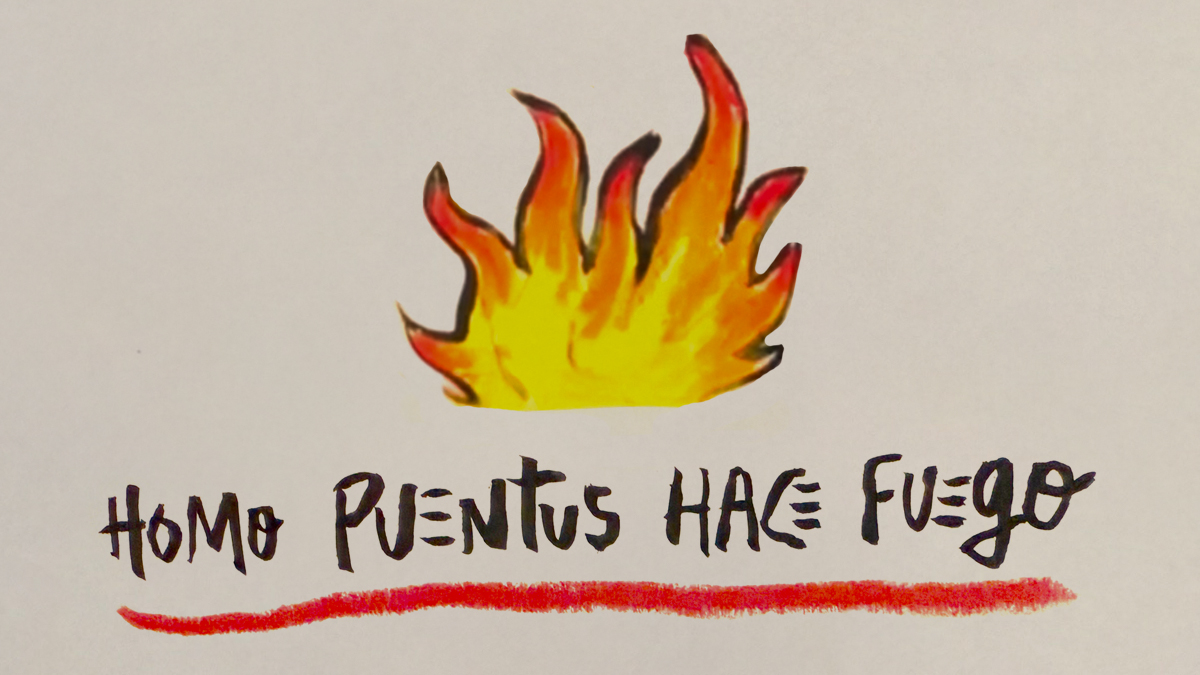 HOMO PUENTUS HACE FUEGO